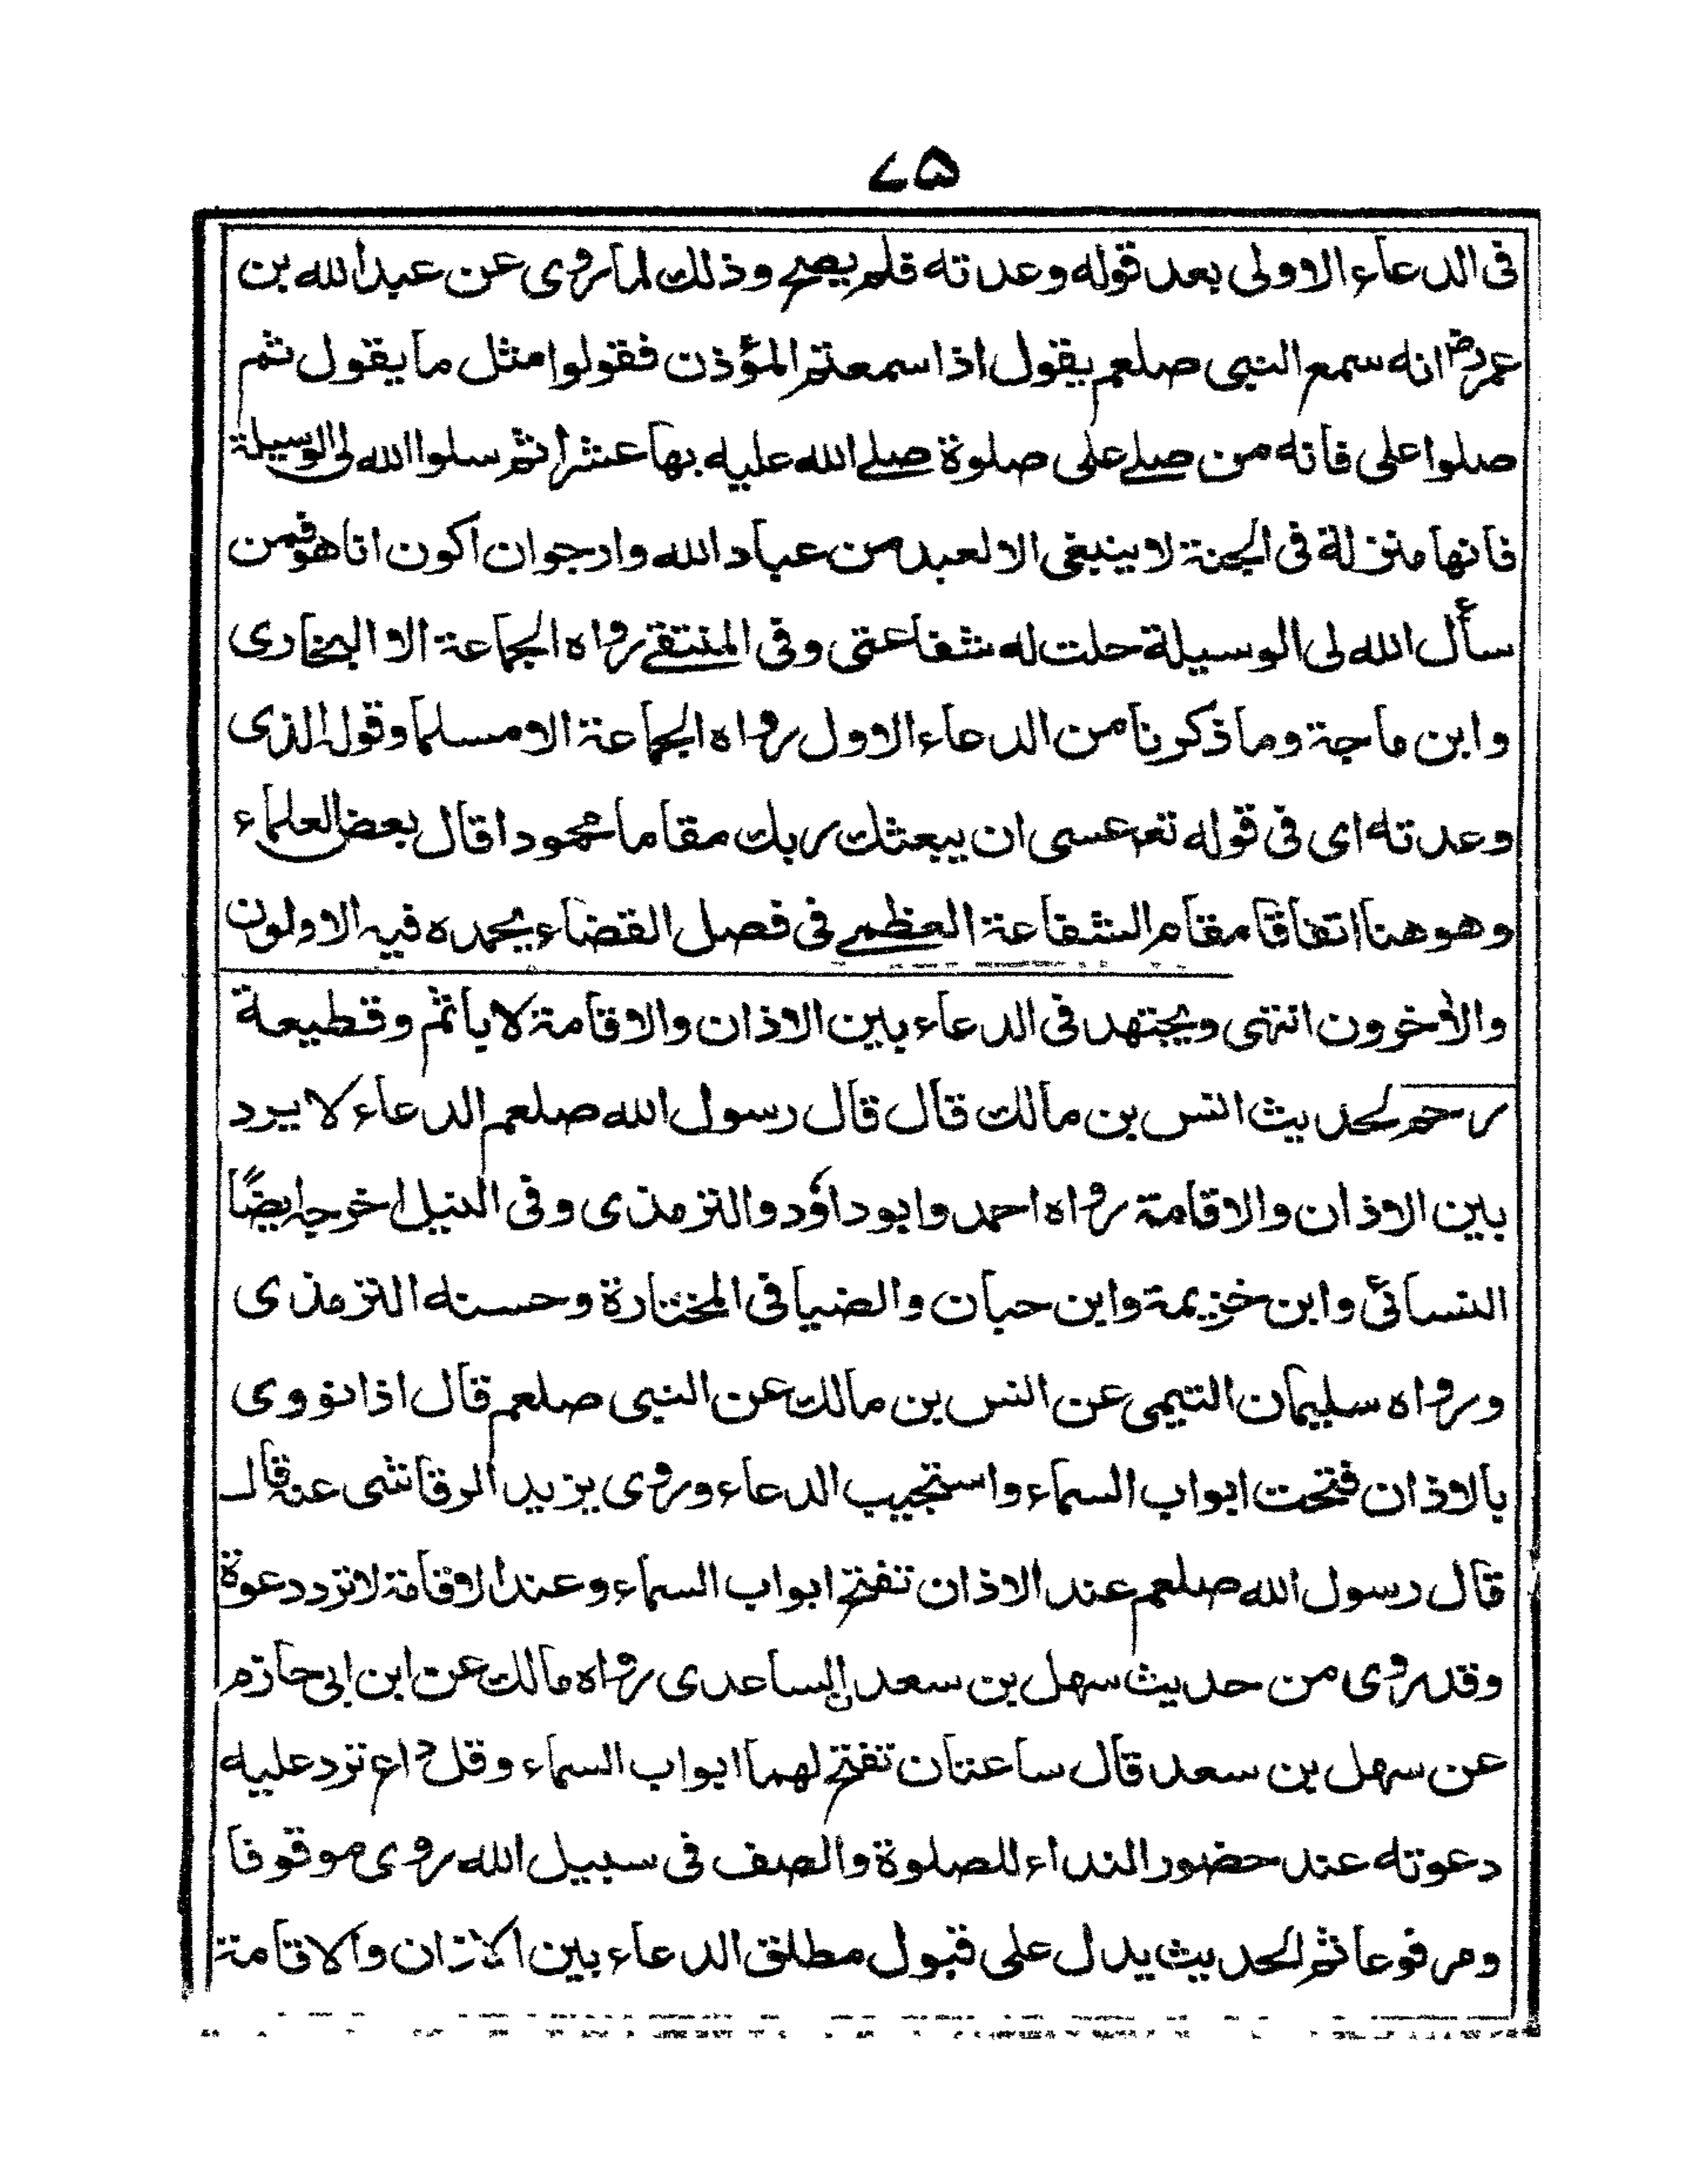 ٧٥
فى الدعاء الاولى بعد قوله وعدته فلم يصح وذلك لما روى عن عبد الله بن
عمر رض انه سمع النبى صلعم يقول اذا سمعتم المؤذن فقولوا مثل ما يقول ثم
صلوا على فانه من صلے على صلوة صلے الله عليه بها عشرا ثم سلوا الله لى الوسيلة
فانها منزلة فى الجنة لا ينبغى الا لعبد من عباد الله وارجوان اكون انا هو فمن
سأل الله لى الوسيلة حلت له شفاعتى وفى المنتقے رواه الجماعة الا البخارى
وابن ماجة وما ذكرنا من الدعاء الاول رواه الجماعة الا مسلما وقوله الذى
وعدته اى فى قوله تعم عسى ان يبعثك ربك مقاما محمودا قال بعض العلماء
وهو هنا اتفاقا مقام الشفاعة العظمے فى فصل القضاء يحمده فيه الاولون
والأخرون انتهى ويجتهد فى الدعاء بين الاذان والاقامة لا ياثم وقطيعة
رحم لحديث انس بن مالك قال قال رسول الله صلعم الدعاء لا يرد
بين الاذان والاقامة رواه احمد وابو داؤد والترمذى وفى النيل اخرجه ايضًا
النسائى وابن خزيمة وابن حبان والضيا فى المختارة وحسنه الترمذى
ورواه سليمان التيمى عن انس بن مالك عن النبى صلعم قال اذا نووى
بالاذان فتحت ابواب السماء واستجيب الدعاء وروى يزيد الرقاشى عنه قال
قال رسول الله صلعم عند الاذان تفتح ابواب السماء وعند الاقامة لا ترد دعوة
وقد روى من حديث سهل بن سعد الساعدى رواه مالك عن ابن ابى حازم
عن سهل بن سعد قال ساعتان تفتح لهما ابواب السماء وقل داع ترد عليه
دعوته عند حضور النداء للصلوة والصف فى سبيل الله روى موقوفا
ومرفوعا ثم الحديث يدل على قبول مطلق الدعاء بين الاذان والاقامة